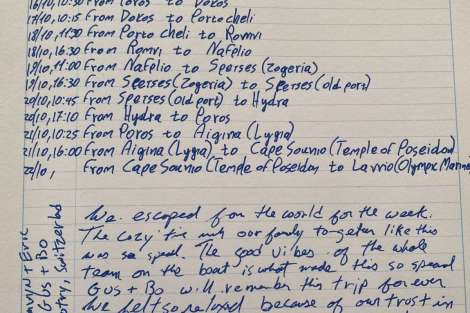 16/10, 10:30 From Poros to Dokos
17/10, 10:15 From Dokos to Porto cheli
18/10, 11:30 From Porto cheli to Romvi
18/10, 16:30 From Romvi to Nafplio
19/10, 11:00 From Nafplio to Sperses (Zogeria)
19/10, 16:30 From Sperses (Zogeria) to Sperses (old port)
20/10, 10:45 From Sperses (old port) to Hydra
20/10, 17:10 From Hydra to Poros
21/10, 10:25 From Poros to Aigina (Lygia)
21/10, 16:00 From Aigina (Lygia) to Cape Sounio (Temple of Poseidon)
22/10, From Cape Sounio (Temple of Poseidon to Lavrio (Olympic Marina
We escaped from the world for the week.
The cozy time with our family together like this
was so special. The good vibes of the whole
team on the boat is what made this so special
Gus + Bo will remember this trip forever
We felt so relaxed because of our trust in
+ Eric
Gus + Bo
Switzerland